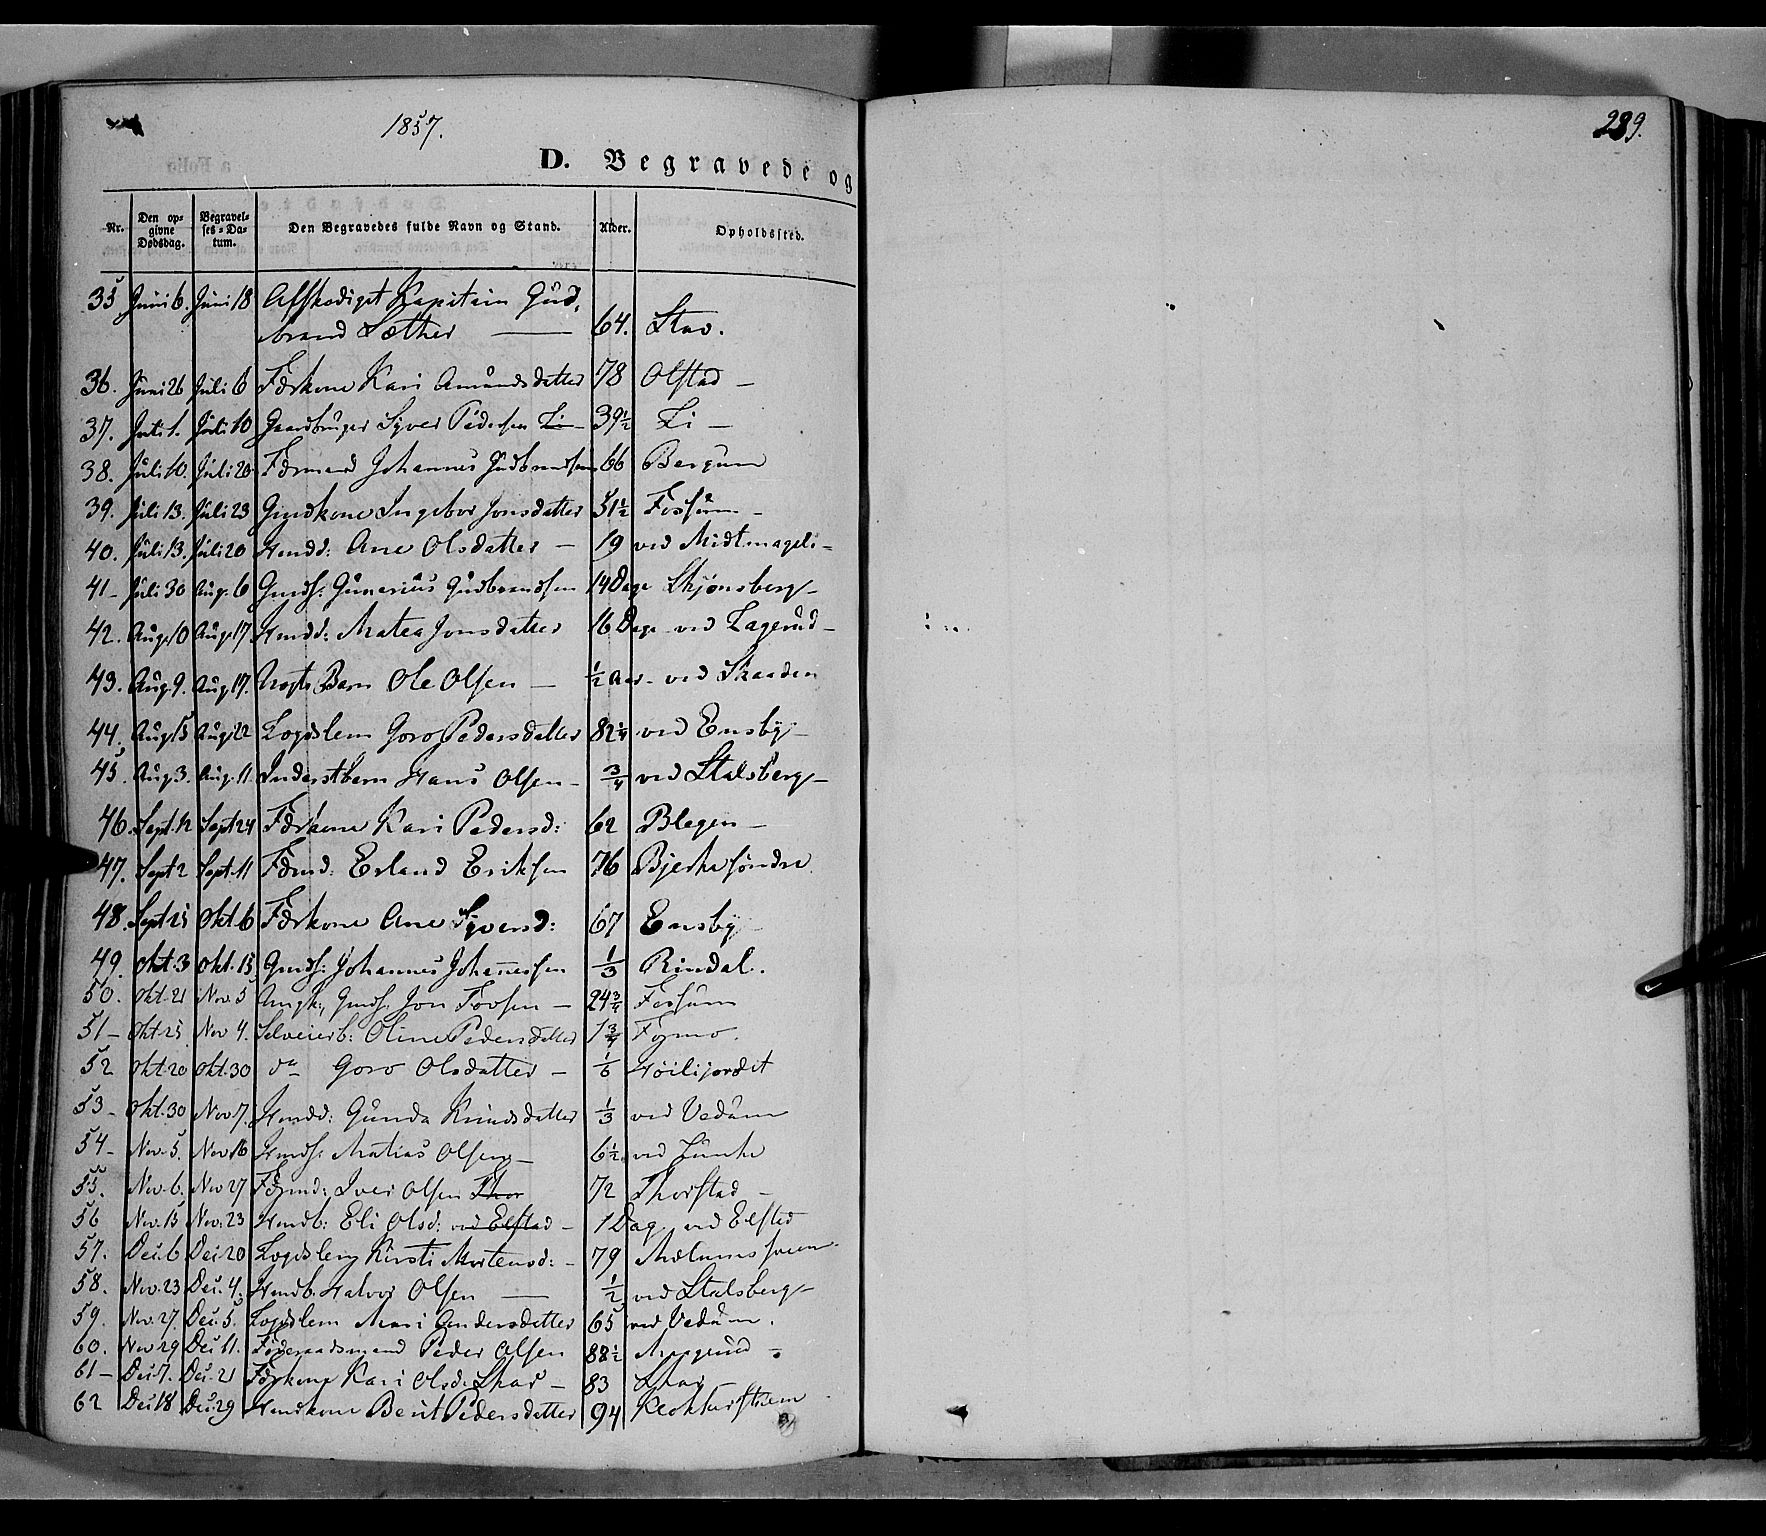 1857.
239.
D. Begravede og
Nr. Den opgivne Dødsdag. Begravelses-Datum. Den Begravedes fulde Navn og Stand. Alder. Opholdssted.
35 Juni 6. Juni 18 Afskediget Kapitain Gud-
brand Sæther — 64. Stav.
36. Juni 26 Juli 6 Førkone Kari Amundsdatter 78 Olstad —
37. Juli 1. Juli 10 Gaardbruger Syver Pedersen Li 39½ Li —
38. Juli 10. Juli 20 Førmand Johannes Gudbrandsen 66 Bergum
39. Juli 13. Juli 23 Gmdkone Ingebor Jonsdatter 51½ Fossum —
40. Juli 13. Juli 20 Hmdd: Ane Olsdatter — 19 ved Midtmageli —
41 — Juli 30 Aug. 6 Gmds: Gunerius Gudbrandsen 14 Dage Skjønsberg —
42. Aug. 10 Aug. 17 Hmdd: Matea Jonsdatter 16 Dage ved Lagerud —
43. Aug. 9. Aug. 17. Uægte Barn Ole Olsen — ½ Aar — ved Skaaden
44. Aug. 15 Aug. 22 Lægdslem Goro Pedersdatter 82¼ ved Ensby —
45. Aug. 3. Aug. 11 Inderstbarn Hans Olsen — ¾ ved Stalsberg —
46. Sept. 12 Sept. 24 Førkone Kari Pedersd: 62 Blegen —
47. Sept 2 Sept. 11 Førmd: Erland Eriksen 76 Bjerke søndre.
48. Sept 25 Okt. 6 Førkone Ane Syversd: 67 Ensby —
49. Okt. 3 Okt. 15 Gmds: Johannes Johannessen ⅓ Rindal.
50. Okt. 21 Nov. 5 Ungk., Gmds. Jon Tovsen — 24¾ Fossum
51 — Okt. 25 Nov 4. Selveierb: Oline Pedersdatter 1¾ Fygmo.
52 Okt. 20 Okt. 30 do Goro Olsdatter — ⅙ Høilijordet
53 — Okt. 30 Nov 7. Hmdd: Gunda Knudsdatter ⅓ ved Vedum
54 — Nov. 5. Nov 16 Hmds: Matias Olsen — 6½ ved Lunke
55. Nov. 6. Nov 27 Førmd: Iver Olsen Thor 72 Thorstad —
56 Nov. 15 Nov. 23 Hmdb: Eli Olsd: ved Elstad — 1 Dag ved Elstad
57. Dec. 6 Dec 20 Lægdslem Kirsti Mortensd: — 79 Mælumsveen
58. Nov. 23 Dec. 4. Hmdb. Halvor Olsen — ½ ved Stalsberg —
59. Nov. 27. Dec. 5. Lægdslem Mari Andersdatter 65 ved Vedum.
60. Nov 29 Dec 11. Føderaadsmand Peder Olsen 88½
61 — Dec. 7. Dec. 21 Førkone Kari Olsd. Skar — 83 Skar —
62 Dec 18 Dec. 29 Hmdkone Berit Pedersdatter 94